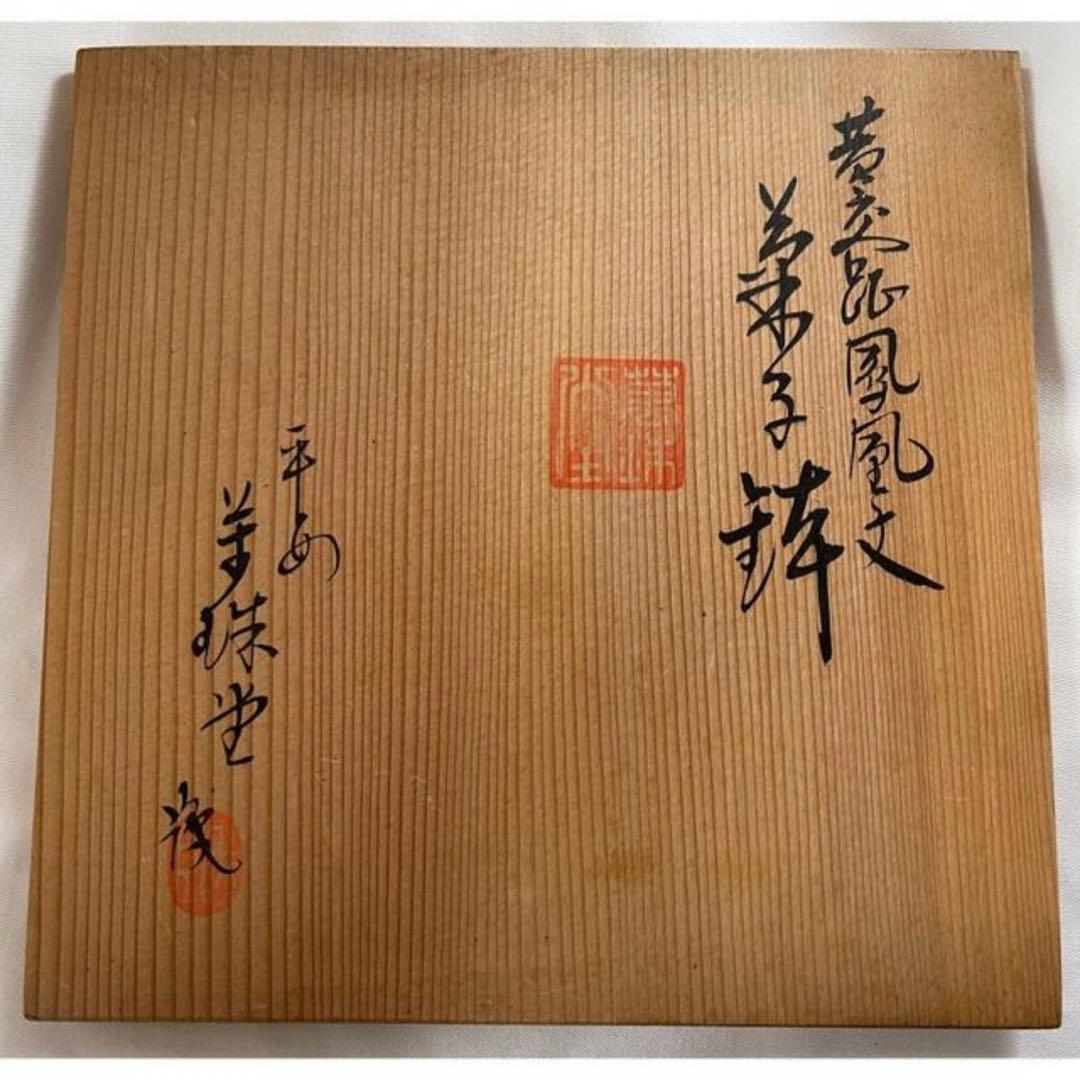 黄交趾鳳凰文
菓子鉢
平安
萬珠堂